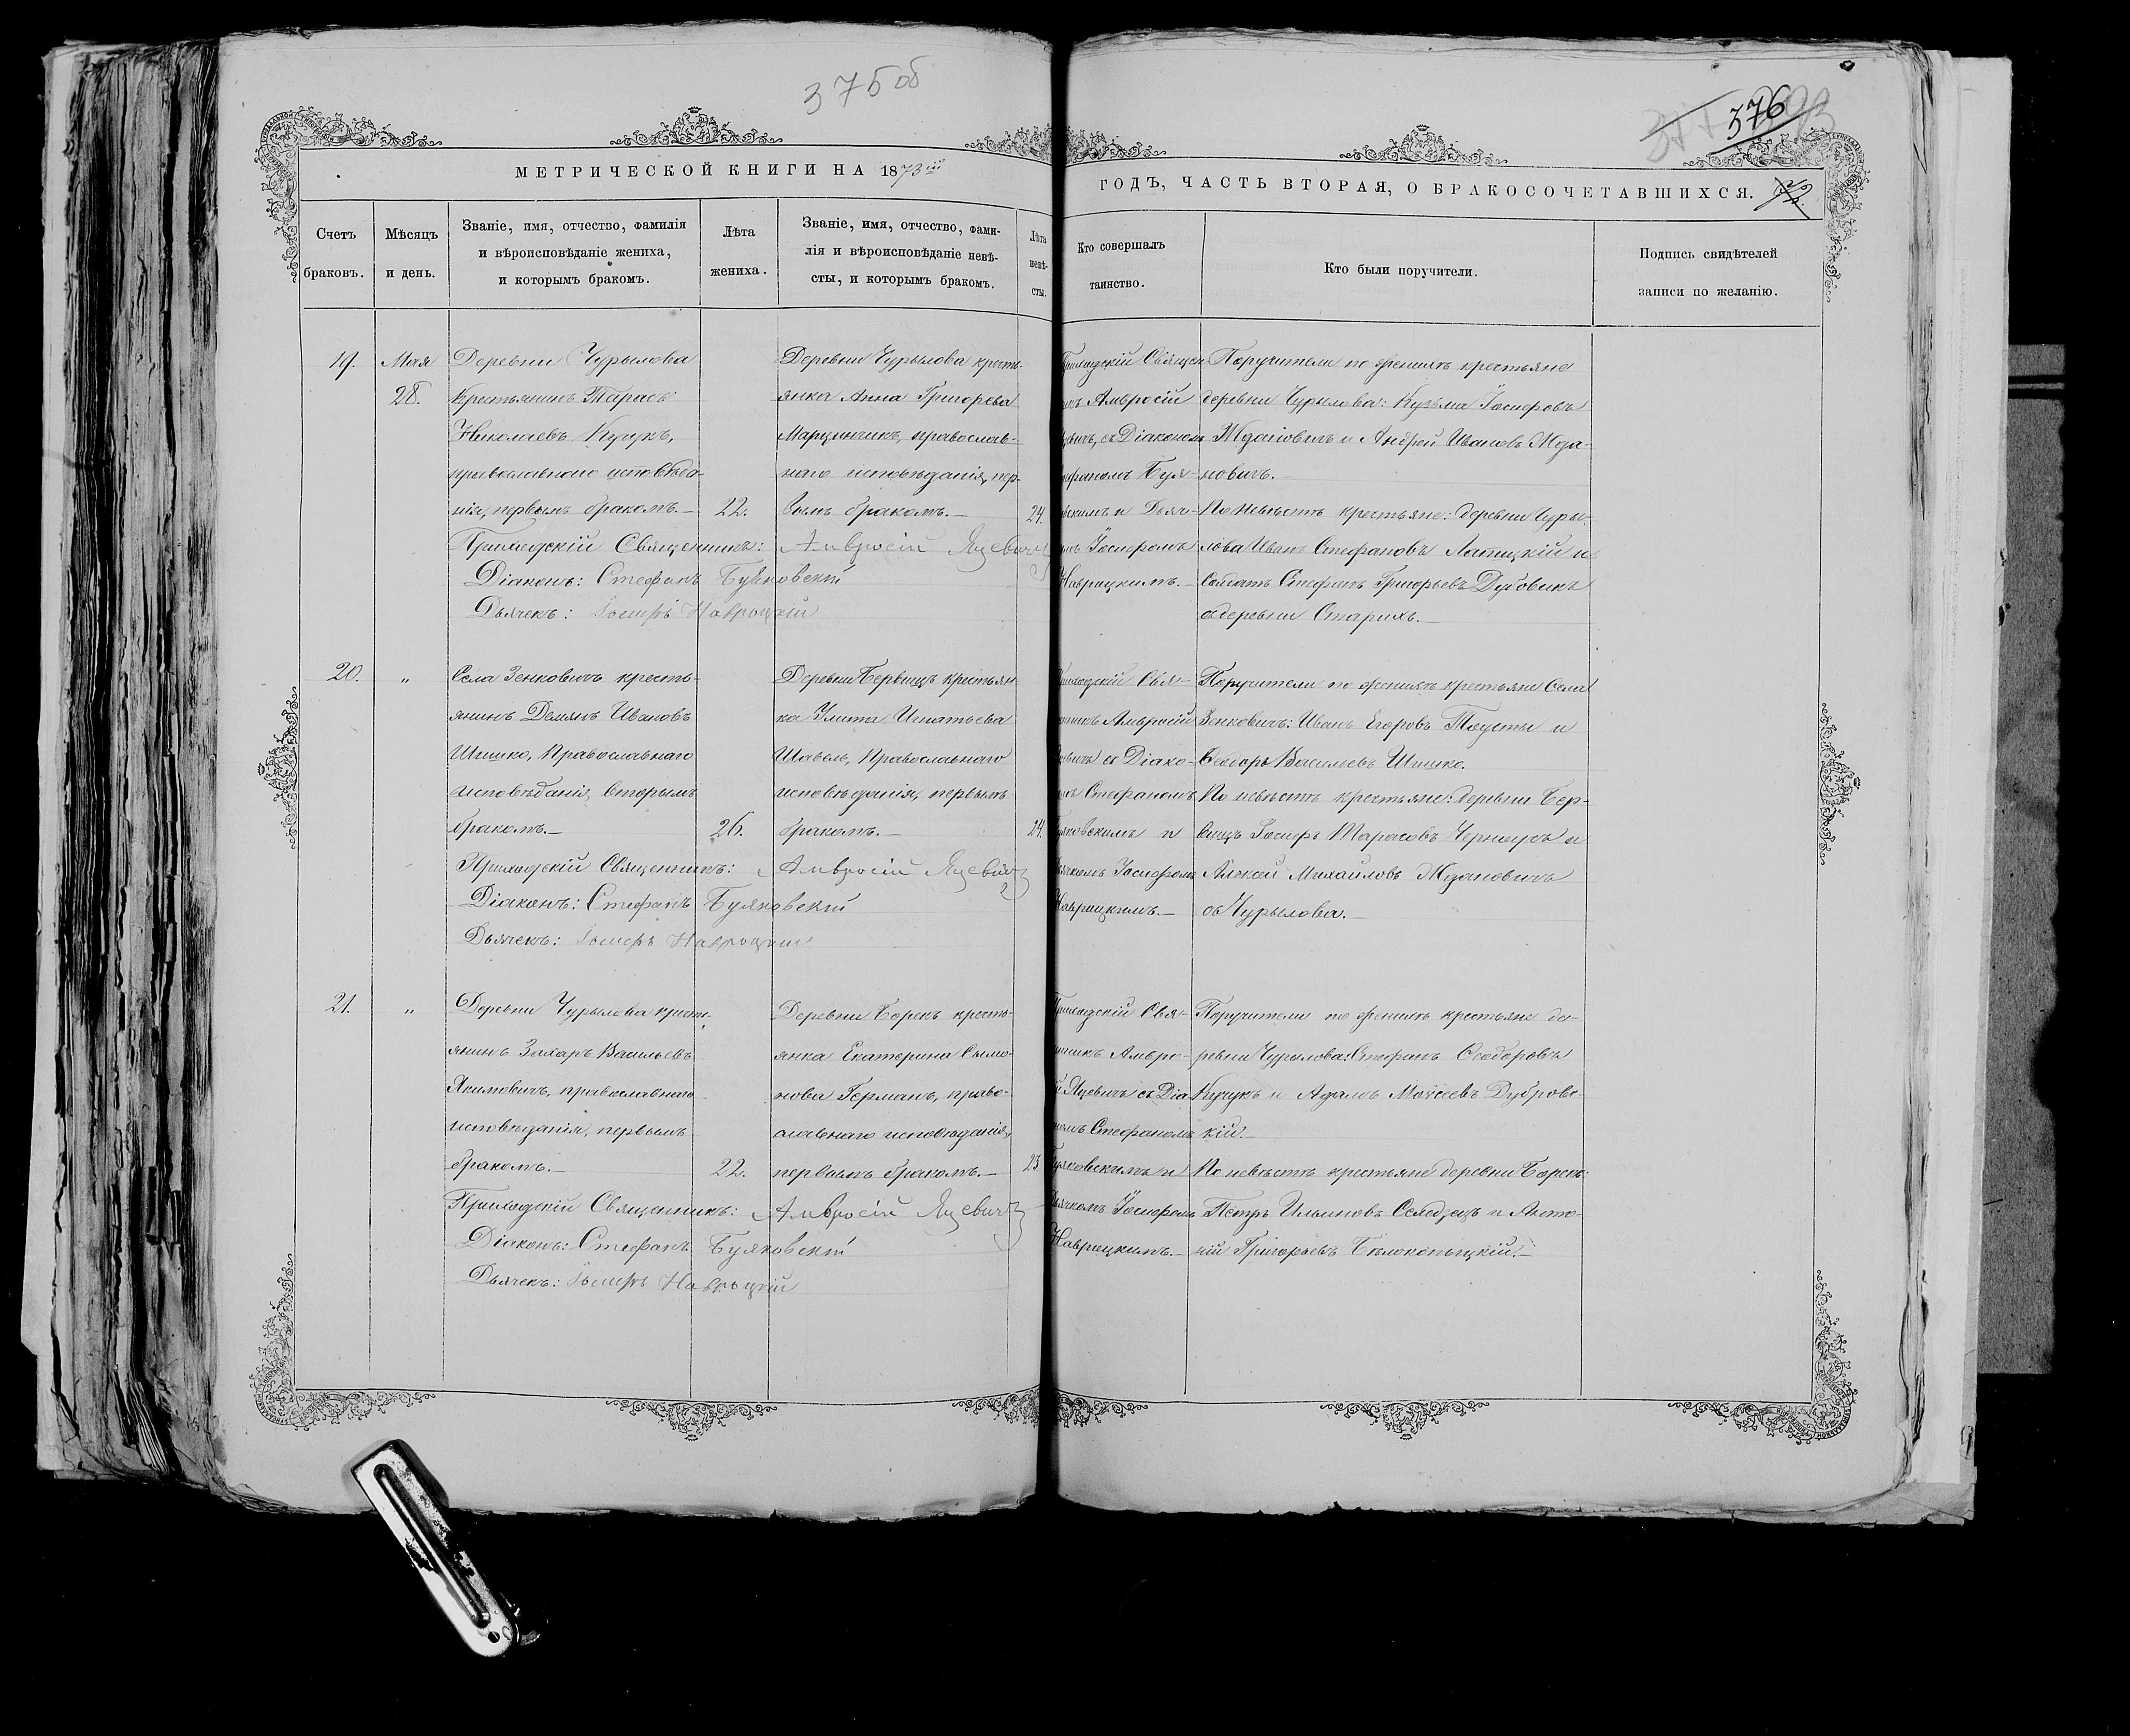 375 об
376
МЕТРИЧЕСКОЙ КНИГИ НА 1873
ГОДЪ, ЧАСТЬ ВТОРАЯ, О БРАКОСОЧЕТАВШИХСЯ.
Счетъ
браковъ.
Мѣсяцъ
и день.
Званіе, имя, отчество, фамилія
и вѣроисповѣданіе жениха,
и которымъ бракомъ.
Лѣта
жениха.
Званіе, имя, отчество, фами-
лія и вѣроисповѣданіе невѣ-
сты, и которымъ бракомъ.
Лѣта
невѣ-
сты.
Кто совершалъ
таинство.
Кто были поручители.
Подпись свидѣтелей
записи по желанію.
19.
Мая
28.
Деревни Чурылова
крестьянинъ Тарасъ
Николаевъ Кучукъ,
православнаго исповѣда-
нія, первымъ бракомъ.—
22.
Деревни Чурылова кресть-
янка Анна Григорьева
Марцинчикъ, православ-
наго исповѣданія, пер-
вымъ бракомъ.—
24.
Приходскій Священ-
Амвросій
съ Діакономъ
Буя-
и Дьяч-
Іосифомъ
Наврацкимъ.—
Поручители по женихѣ крестьяне
деревни Чурылова: Кузьма Іосифовъ
Ждановичъ и Андрей Ивановъ Жда-
новичъ.
По невѣстѣ крестьяне: деревни Чуры-
лова Иванъ Стефановъ Лапицкій и
Солдатъ Стефанъ Григорьевъ Дубовикъ
съ деревни Старихъ.—
Приходскій Священникъ: Амвросій Яцевичъ
Діаконъ: Стефанъ Буяковскій
Дьячекъ: Іосифъ Навроцкій
20.
"
Села Зенковичъ кресть-
янинъ Демянъ Ивановъ
Шишко, Православнаго
исповѣданія, вторымъ
бракомъ.—
26.
Деревни Бервищъ крестьян-
ка Улита Игнатьева
Шавель, Православнаго
исповѣданія, первымъ
бракомъ.—
24.
Приходскій Свя-
Амвросій
съ Діако-
Стефаномъ
Буяковскимъ и
Дьячкомъ Іосифомъ
Наврацкимъ.—
Поручители по женихѣ крестьяне Села
Зенковичъ: Иванъ Егоровъ и
Ѳеодоръ Васильевъ Шишко.
По невѣстѣ крестьяне: деревни Бер-
вищъ Іосифъ Тарасовъ и
Алексей Михайловъ Ждановичъ
съ Чурылова.—
Приходскій Священникъ: Амвросій Яцевичъ
Діаконъ: Стефанъ Буяковскій
Дьячекъ: Іосифъ Навроцкій
21.
"
Деревни Чурылова кресть-
янинъ Захаръ Васильевъ
Якимовичъ, православнаго
исповѣданія, первымъ
бракомъ.—
22.
Деревни Борекъ кресть-
янка Екатерина Сымо-
нова Германъ, право-
славнаго исповѣданія,
первымъ бракомъ.—
23
Приходскій Свя-
Амвро-
Яцевичъ съ Діа-
Стефаномъ
Буяковскимъ и
Дьячкомъ Іосифомъ
Наврацкимъ.—
Поручители по женихѣ крестьяне де-
ревни Чурылова: Стефанъ Ѳеодоровъ
Кучукъ и Адамъ Моисеевъ Дубровс-
кій.—
По невѣстѣ крестьяне деревни Борекъ:
Петръ Ильиновъ и Анто-
ній Григорьевъ Бѣлокопыцкій.—
Приходскій Священникъ: Амвросій Яцевичъ
Діаконъ: Стефанъ Буяковскій
Дьячекъ: Іосифъ Навроцкій